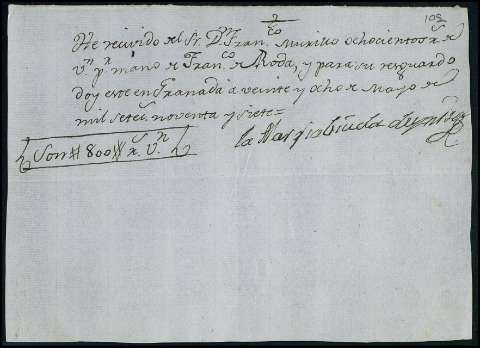 109
2
He recivido del Sr. Dn. Franco. Murillo ochocientos rs. de
vn. pr. mano de Franco. de Roda, y para su resguardo
doy este en Granada à veinte y ocho de Mayo de
mil setecs. noventa y siete=
Son # 800 # rs. vn.
la Marq